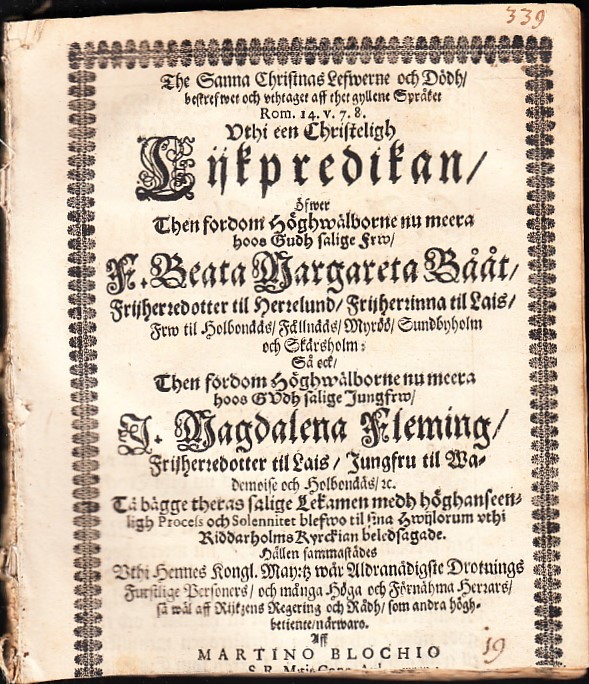 339
The Sanna Christnas Lefwerne och Dödh/
beskrefwet och vthtaget aff thet gyllene Språket
Rom. 14. v. 7. 8.
Vthi een Christeligh
Lijkpredikan/
öfwer
Then fordom Höghwälborne nu meera
hoos Gudh salige Frw/
F. Beata Margareta Bååt,
Frijherredotter til Herrelund/ Frijherrinna til Lais/
Frw til Holbonääs/ Fällnääs/ Myröö/ Sundbyholm
och Skärsholm:
Så ock/
Then fordom Höghwälborne nu meera
hoos GVdh salige Jungfrw/
J. Magdalena Fleming/
Frijherredotter til Lais/ Jungfru til Wa-
demoise och Holbonääs/ ꝛc.
Tå bägge theras salige Lekamen medh höghanseen-
ligh Process och Solennitet blefwo til sina Hwijlorum vthi
Riddarholms Kyrckian beledsagade.
Hållen sammastädes
Vthi Hennes Kongl. May:tz wår Aldranådigste Drotnings
Furstlige Personers/ och många Höga och Förnähma Herrars/
så wäl aff Rijkzens Regering och Rådh/ som andra högh-
betiente/ närwaro.
Aff
MARTINO BLOCHIO
19